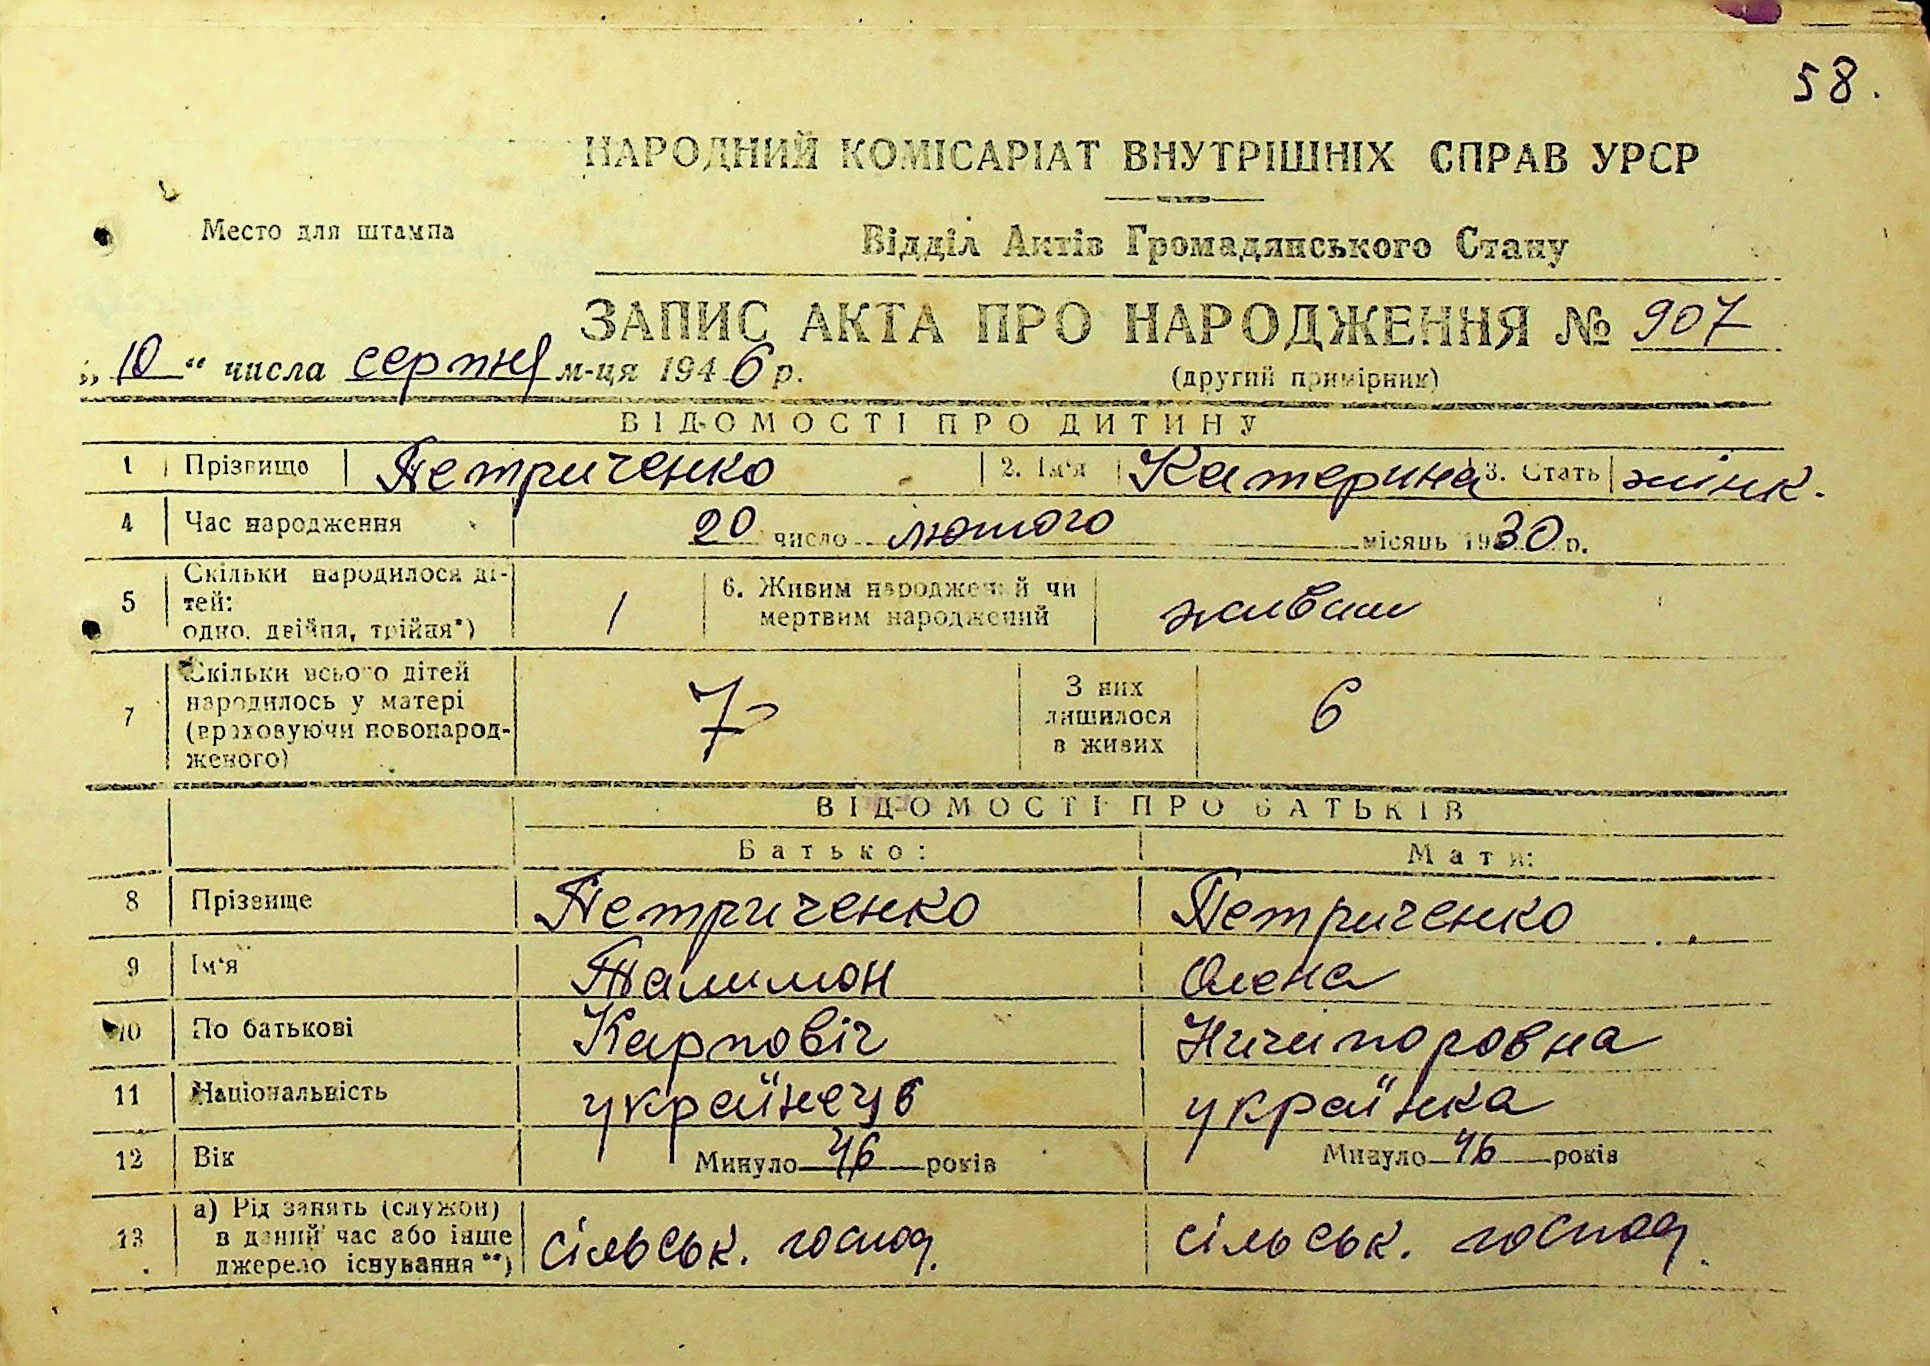 58.
НАРОДНИЙ КОМІСАРІАТ ВНУТРІШНІХ СПРАВ УРСР
Место для штампа
Відділ Актів Громадянського Стану
ЗАПИС АКТА ПРО НАРОДЖЕННЯ № 907
„10“ числа серпня м-ця 1946 р.
(другий примірник)
ВІДОМОСТІ ПРО ДИТИНУ
1 Прізвище Петриченко 2. Ім'я Катерина 3. Стать жінк.
4 Час народження 20 число лютого місяць 1930 р.
5 Скільки народилося ді-
тей:
одно, двійня, трійня*) 1 6. Живим народжений чи
мертвим народжений живим
7 Скільки всього дітей
народилось у матері
(враховуючи новонарод-
женого) 7 З них
лишилося
в живих 6
ВІДОМОСТІ ПРО БАТЬКІВ
Батько: Мати:
8 Прізвище Петриченко Петриченко
9 Ім'я Палимон Олена
10 По батькові Карповіч Ничипоровна
11 Національність українець українка
12 Вік Минуло 46 років Минуло 46 років
13 а) Рід занять (служби)
в даний час або інше
джерело існування**) сільськ. господ. сільськ. господ.